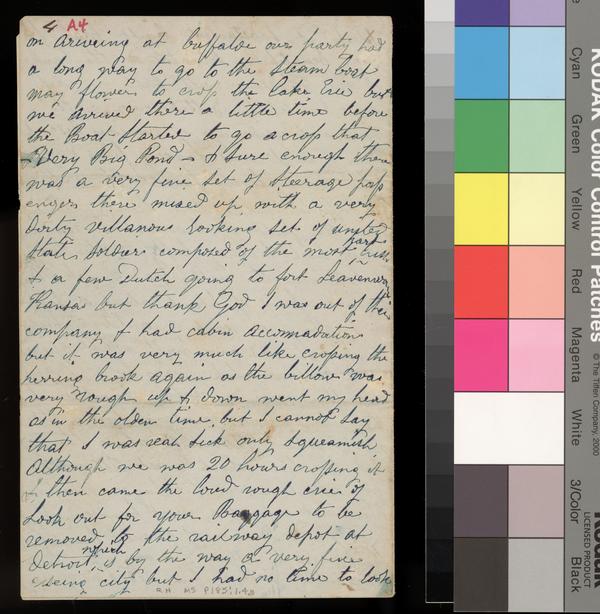 4 A4
on Ariveing at buffaloe our party had
a long way to go to the Steam boat
may flower to crop the lake Erie but
we arrived there a little time before
the Boat Started to go acrop that
Very Big Pond & Sure enough there
was a very fine set of Steerage pap
engers there mixed up with a very
Dirty villanous looking set of united
States Soldiers composed of the most part
& a few Dutch going to fort Leavenw
Kansas but thank God I was out of their
company & had cabin accomadation
but it was very much like cropping the
herring brook again as the billows was
very rough up & down went my head
as in the olden time but I cannot Say
that I was reah Sick only Squeamish
Although we was 20 hours cropping it
& then came the loud rough cries of
Look out for your Baggage to be
removed to the railway depot at
Detroit which is by the way a very fine
Seing city but I had no time to look
RH MS P185:1.4a
KODAK Color Control Patches
© The Tiffen Company, 2000
Cyan
Green
Yellow
Red
Magenta
White
3/Color
Black
Kodak
LICENSED PRODUCT